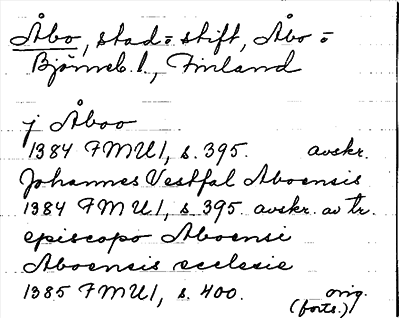 Åbo, stad= stift, Åbo =
Björneb. l., Finland
j Åboo
1384 FMU1, s. 395. avskr.
Johannes Vestfal Aboensis
1384 FMU1, s. 395. avskr. av tr.
episcopo Aboensi
Aboensis ecclesie
1385 FMU1, s. 400. orig.
(forts.)